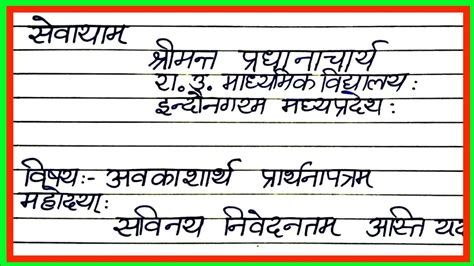 सेवायाम
श्रीमन्त प्रधानाचार्य
रा. उ. माध्यमिक विद्यालय:
इन्दौनगरम मध्यप्रदेश:
विषय:- अवकाशार्थ प्रार्थनापत्रम
महोदया:
सविनय निवेदनतम अस्ति यद